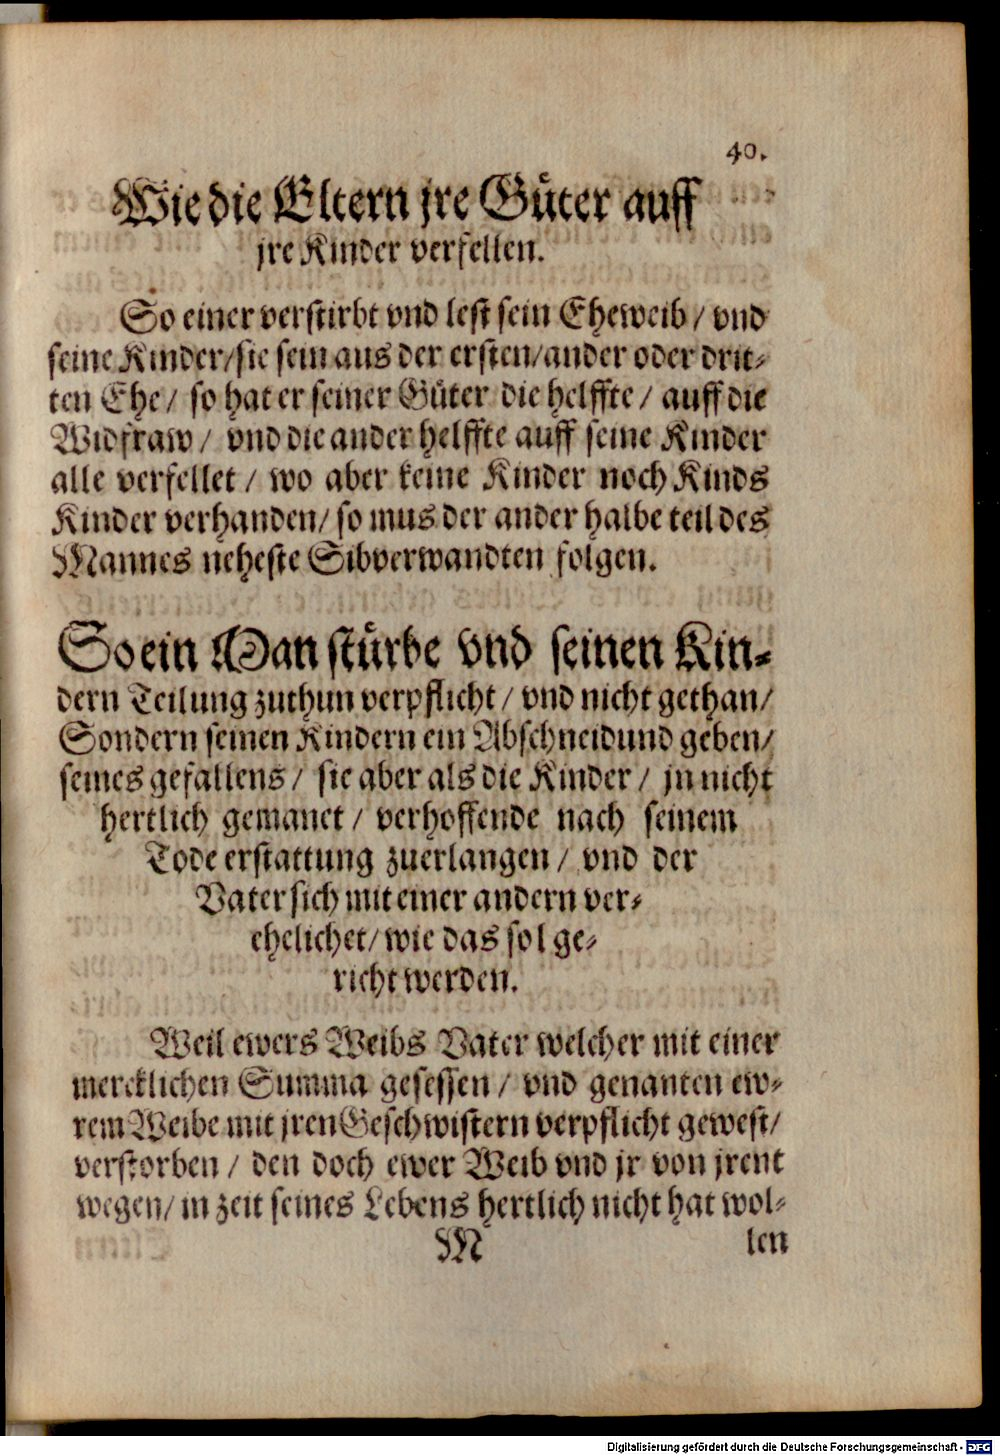 40.
Wie die Eltern jre Gůter auff
jre Kinder verfellen.
So einer verstirbt vnd lest sein Eheweib / vnd
seine Kinder/sie sein aus der ersten/ander oder drit-
ten Ehe / so hat er seiner Gůter die helffte / auff die
Widfraw / vnd die ander helffte auff seine Kinder
alle verfellet / wo aber keine Kinder noch Kinds
Kinder verhanden/ so mus der ander halbe teil des
Mannes neheste Sibverwandten folgen.
So ein Man stůrbe vnd seinen Kin-
dern Teilung zuthun verpflicht / vnd nicht gethan/
Sondern seinen Kindern ein Abschneidund geben/
seines gefallens / sie aber als die Kinder / jn nicht
hertlich gemanet / verhoffende nach seinem
Tode erstattung zuerlangen / vnd der
Vater sich mit einer andern ver-
ehelichet/ wie das sol ge-
richt werden.
Weil ewers Weibs Vater welcher mit einer
mercklichen Summa gesessen / vnd genanten ew-
rem Weibe mit jren Geschwistern verpflicht gewest/
verstorben / den doch ewer Weib vnd jr von jrent
wegen/ in zeit seines Lebens hertlich nicht hat wol-
M len
Digitalisierung gefördert durch die Deutsche Forschungsgemeinschaft - DFG